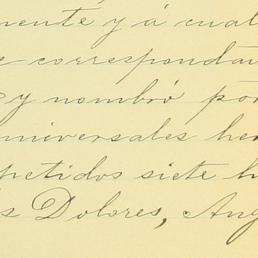 mente y á cual
correspondan
y nombró por
universales her
petidos siete h
s Dolores, Ang